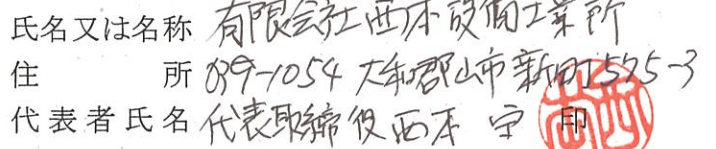 氏名又は名称 有限会社西本設備工業所
住所 639-1054 大和郡山市新町575-3
代表者氏名 代表取締役 西本 守 印